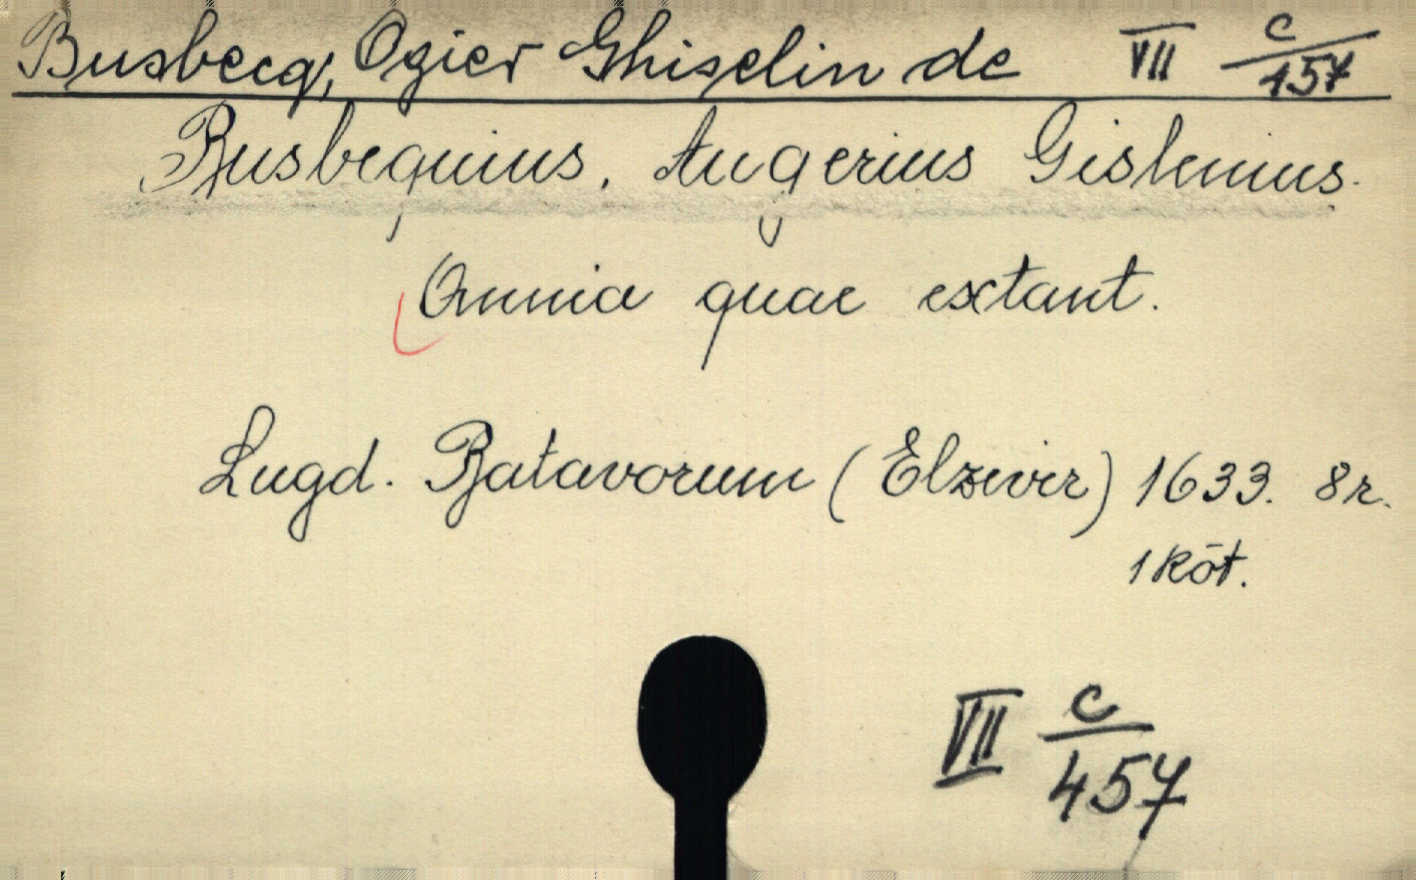 Busbecq, Ogier Ghiselin de VII c/457
Busbequius, Augerius Gislenius.
Omnia quae extant.
Lugd. Batavorum (Elzevir) 1633. 8r.
1 köt.
VII c/457